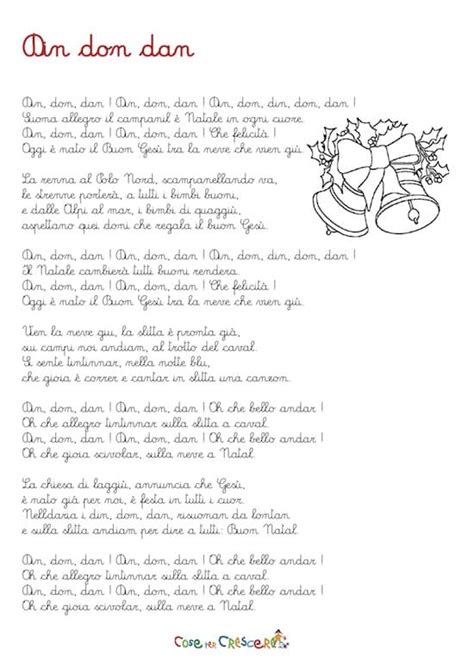 Din don dan
Din, don, dan ! Din, don, dan ! Din, don, din, don, dan !
Suona allegro il campanil è Natale in ogni cuore.
Din, don, dan ! Din, don, dan ! Che felicità !
Oggi è nato il Buon Gesù tra la neve che vien giù.
La renna al Polo Nord, scampanellando va,
le strenne porterà, a tutti i bimbi buoni,
e dalle Alpi al mar, i bimbi di quaggiù,
aspettano quei doni che regala il buon Gesù.
Din, don, dan ! Din, don, dan ! Din, don, din, don, dan !
Il Natale cambierà tutti buoni renderà.
Din, don, dan ! Din, don, dan ! Che felicità !
Oggi è nato il Buon Gesù tra la neve che vien giù.
Vien la neve giu, la slitta è pronta già,
sui campi noi andiam, al trotto del caval.
Si sente tintinnar, nella notte blu,
che gioia è correr e cantar in slitta una canzon.
Din, don, dan ! Din, don, dan ! Oh che bello andar !
Oh che allegro tintinnar sulla slitta a caval.
Din, don, dan ! Din, don, dan ! Oh che bello andar !
Oh che gioia scivolar, sulla neve a Natal.
La chiesa di laggiù, annuncia che Gesù,
è nato già per noi, è festa in tutti i cuor.
Nelldaria i din, don, dan, risuonan da lontan
e sulla slitta andiam per dire a tutti: Buon Natal.
Din, don, dan ! Din, don, dan ! Oh che bello andar !
Oh che allegro tintinnar sulla slitta a caval.
Din, don, dan ! Din, don, dan ! Oh che bello andar !
Oh che gioia scivolar, sulla neve a Natal.
Cose per Crescere